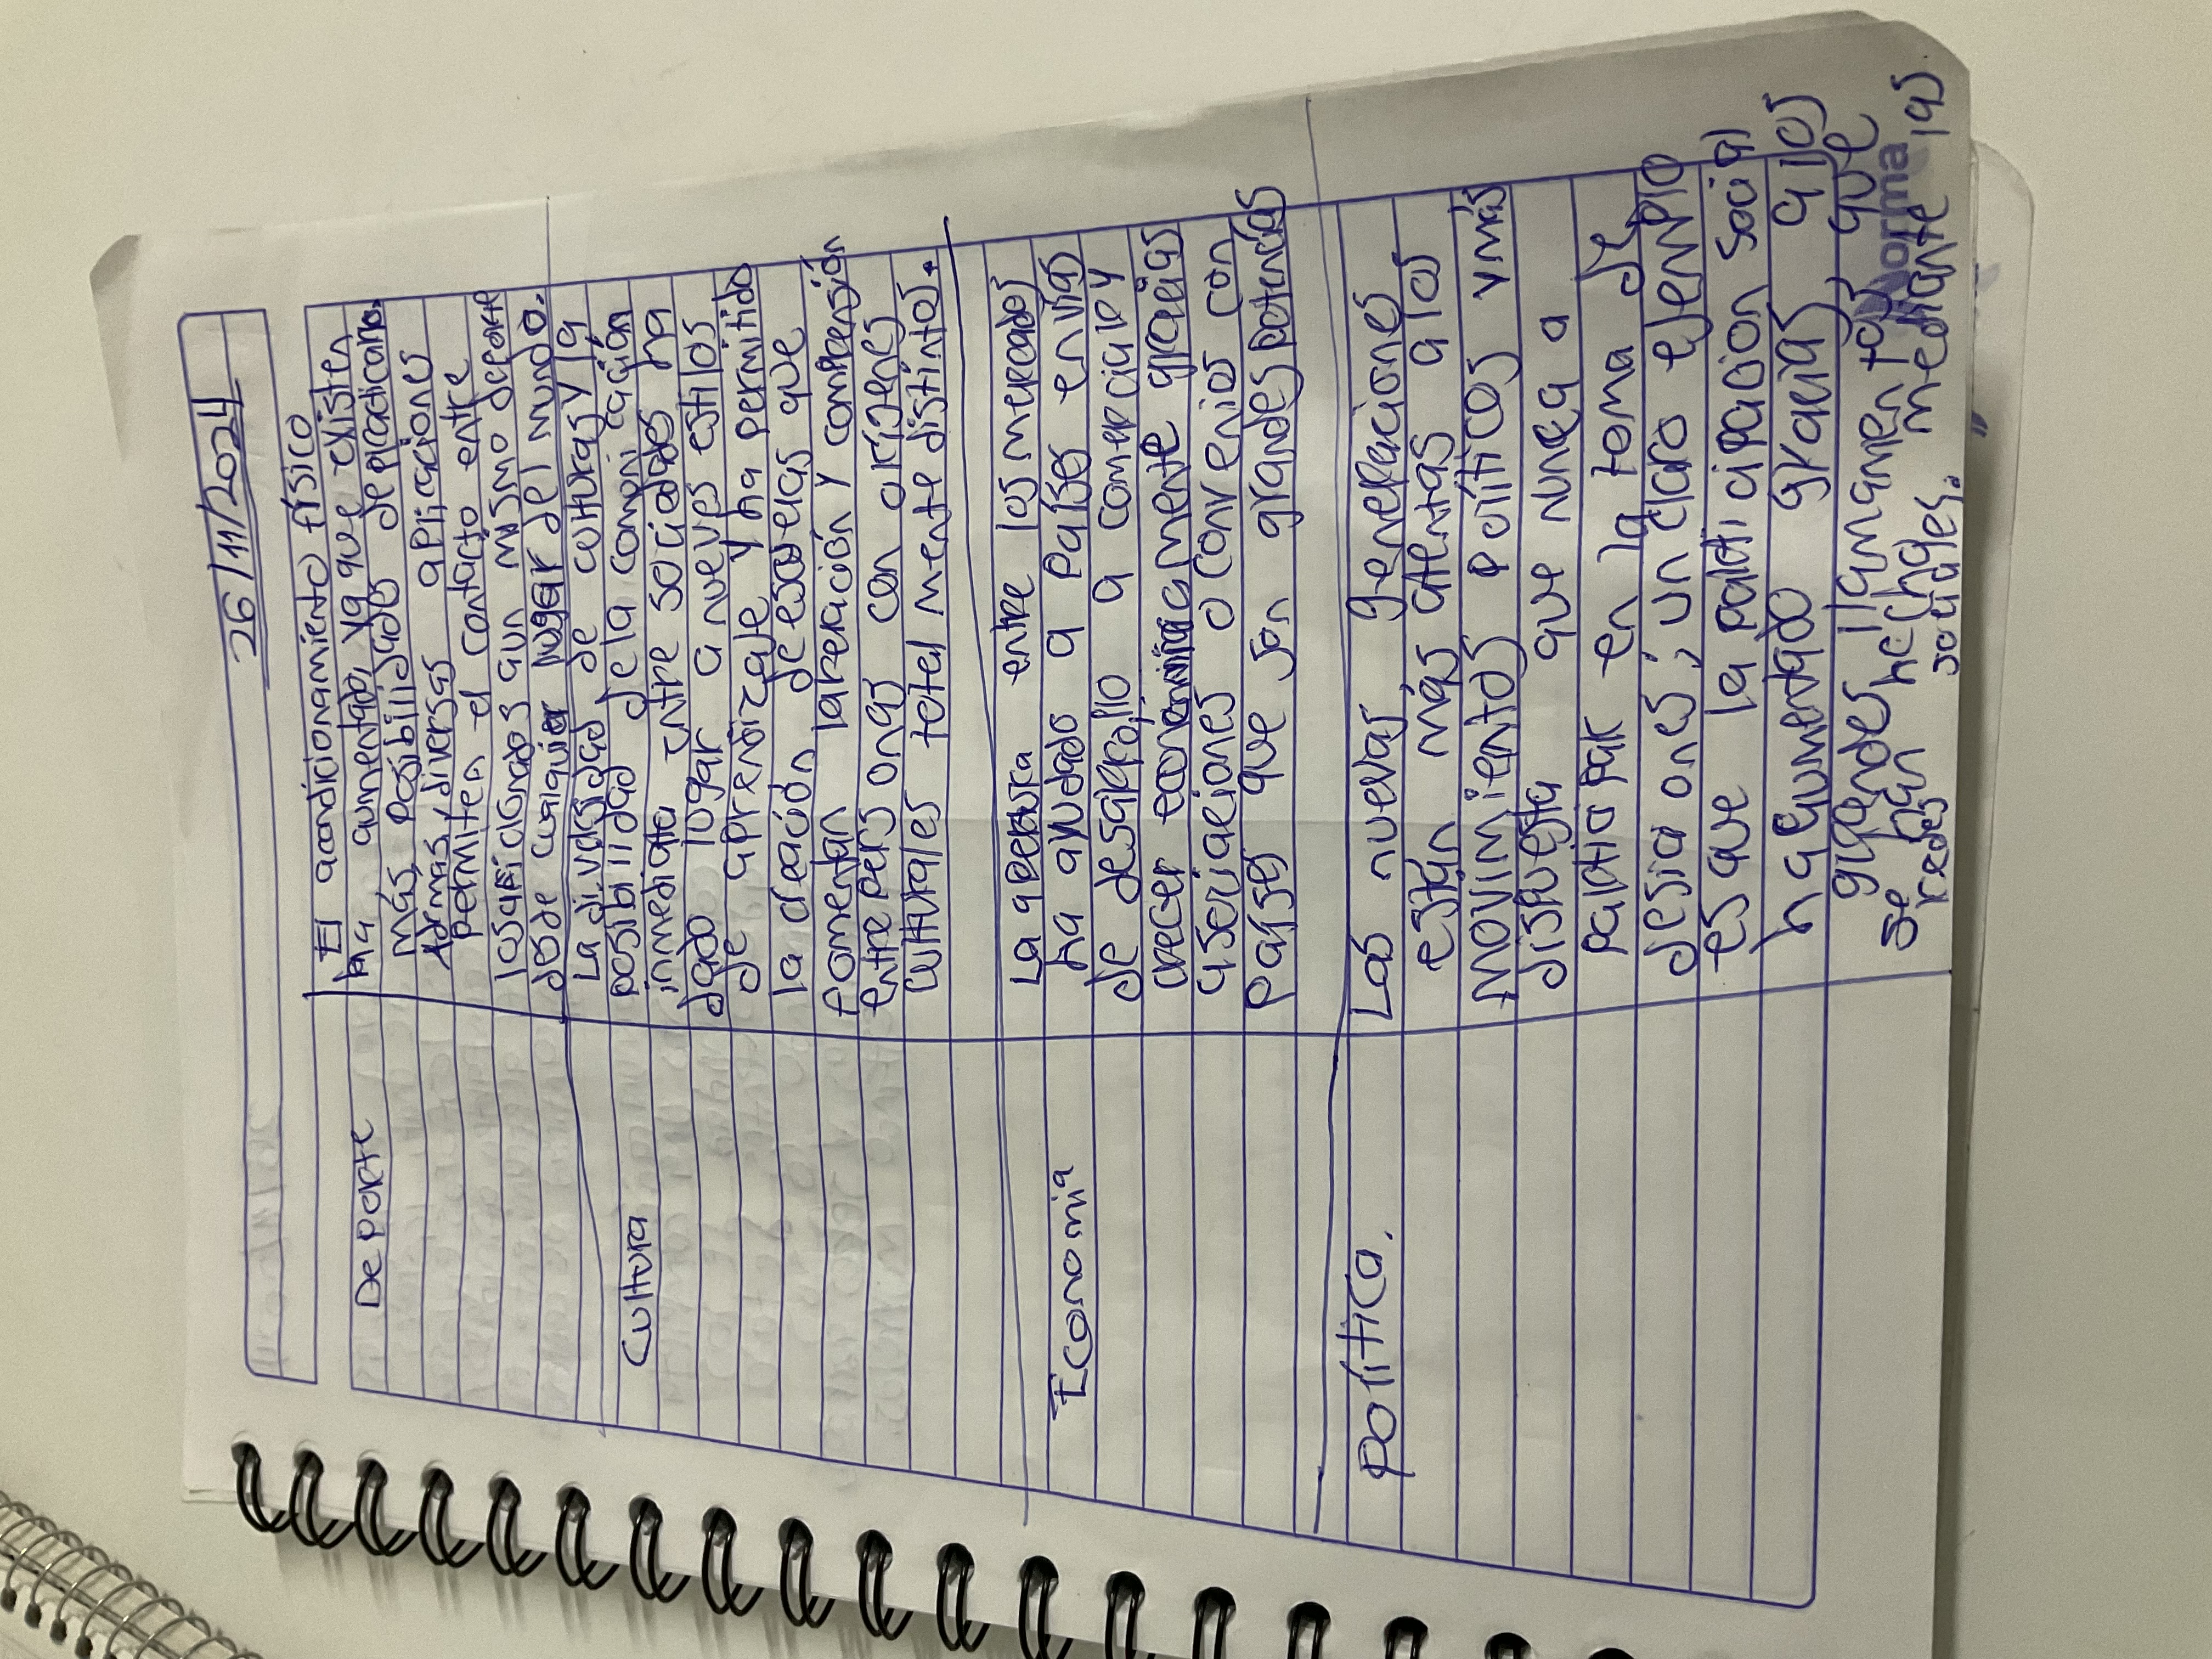 26/11/2024
Deporte
El acondicionamiento físico
ha aumentado, ya que existen
más posibilidades de practicarlo.
Además, diversas aplicaciones
permiten el contacto entre
los aficionados a un mismo deporte
desde cualquier lugar del mundo.
Cultura
La diversidad de culturas y la
posibilidad de la comunicación
inmediata entre sociedades ha
dado lugar a nuevos estilos
de aprendizaje y ha permitido
la creación de escuelas que
fomentan la relación y comprensión
entre personas con orígenes
culturales totalmente distintos.
Economia
La apertura entre los mercados
ha ayudado a países en vías
de desarrollo a comerciar y
crecer económicamente gracias
asociaciones o convenios con
países que son grandes potencias
Política.
Las nuevas generaciones
están más atentas a los
movimientos políticos y más
dispuesta que nunca a
participar en la toma de
desiciones; un claro ejemplo
es que la participación social
ha aumentado gracias a los
grandes llamamentos que
se han hechas mediante las
redes sociales.
Norma